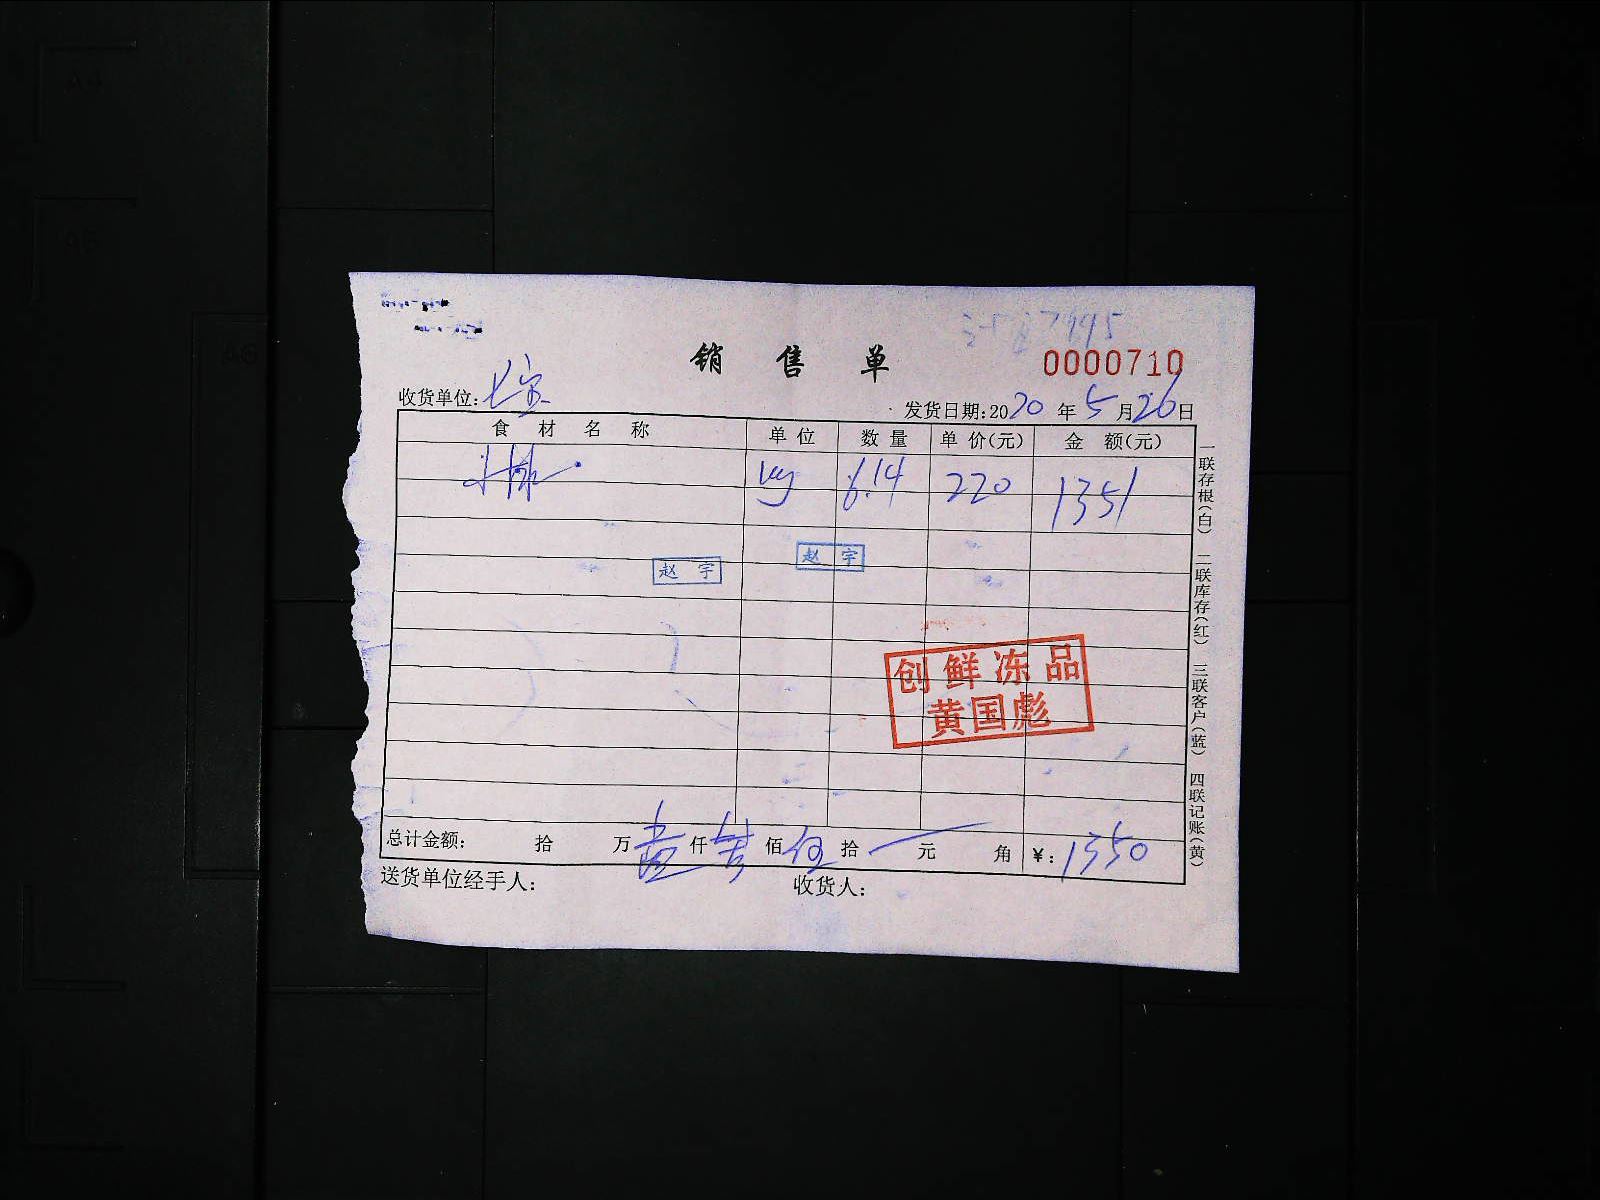 销售单
0000710
收货单位:七宝 发货日期:2020年5月26日
食材名称 单位 数量 单价(元) 金额(元)
牛排 kg 6.14 220 1351
赵宇 赵宇
创鲜冻品
黄国彪
总计金额: 拾 万 壹仟 叁佰 伍拾 元 角 ¥:1350
送货单位经手人: 收货人:
一联存根(白) 二联库存(红) 三联客户(蓝) 四联记账(黄)